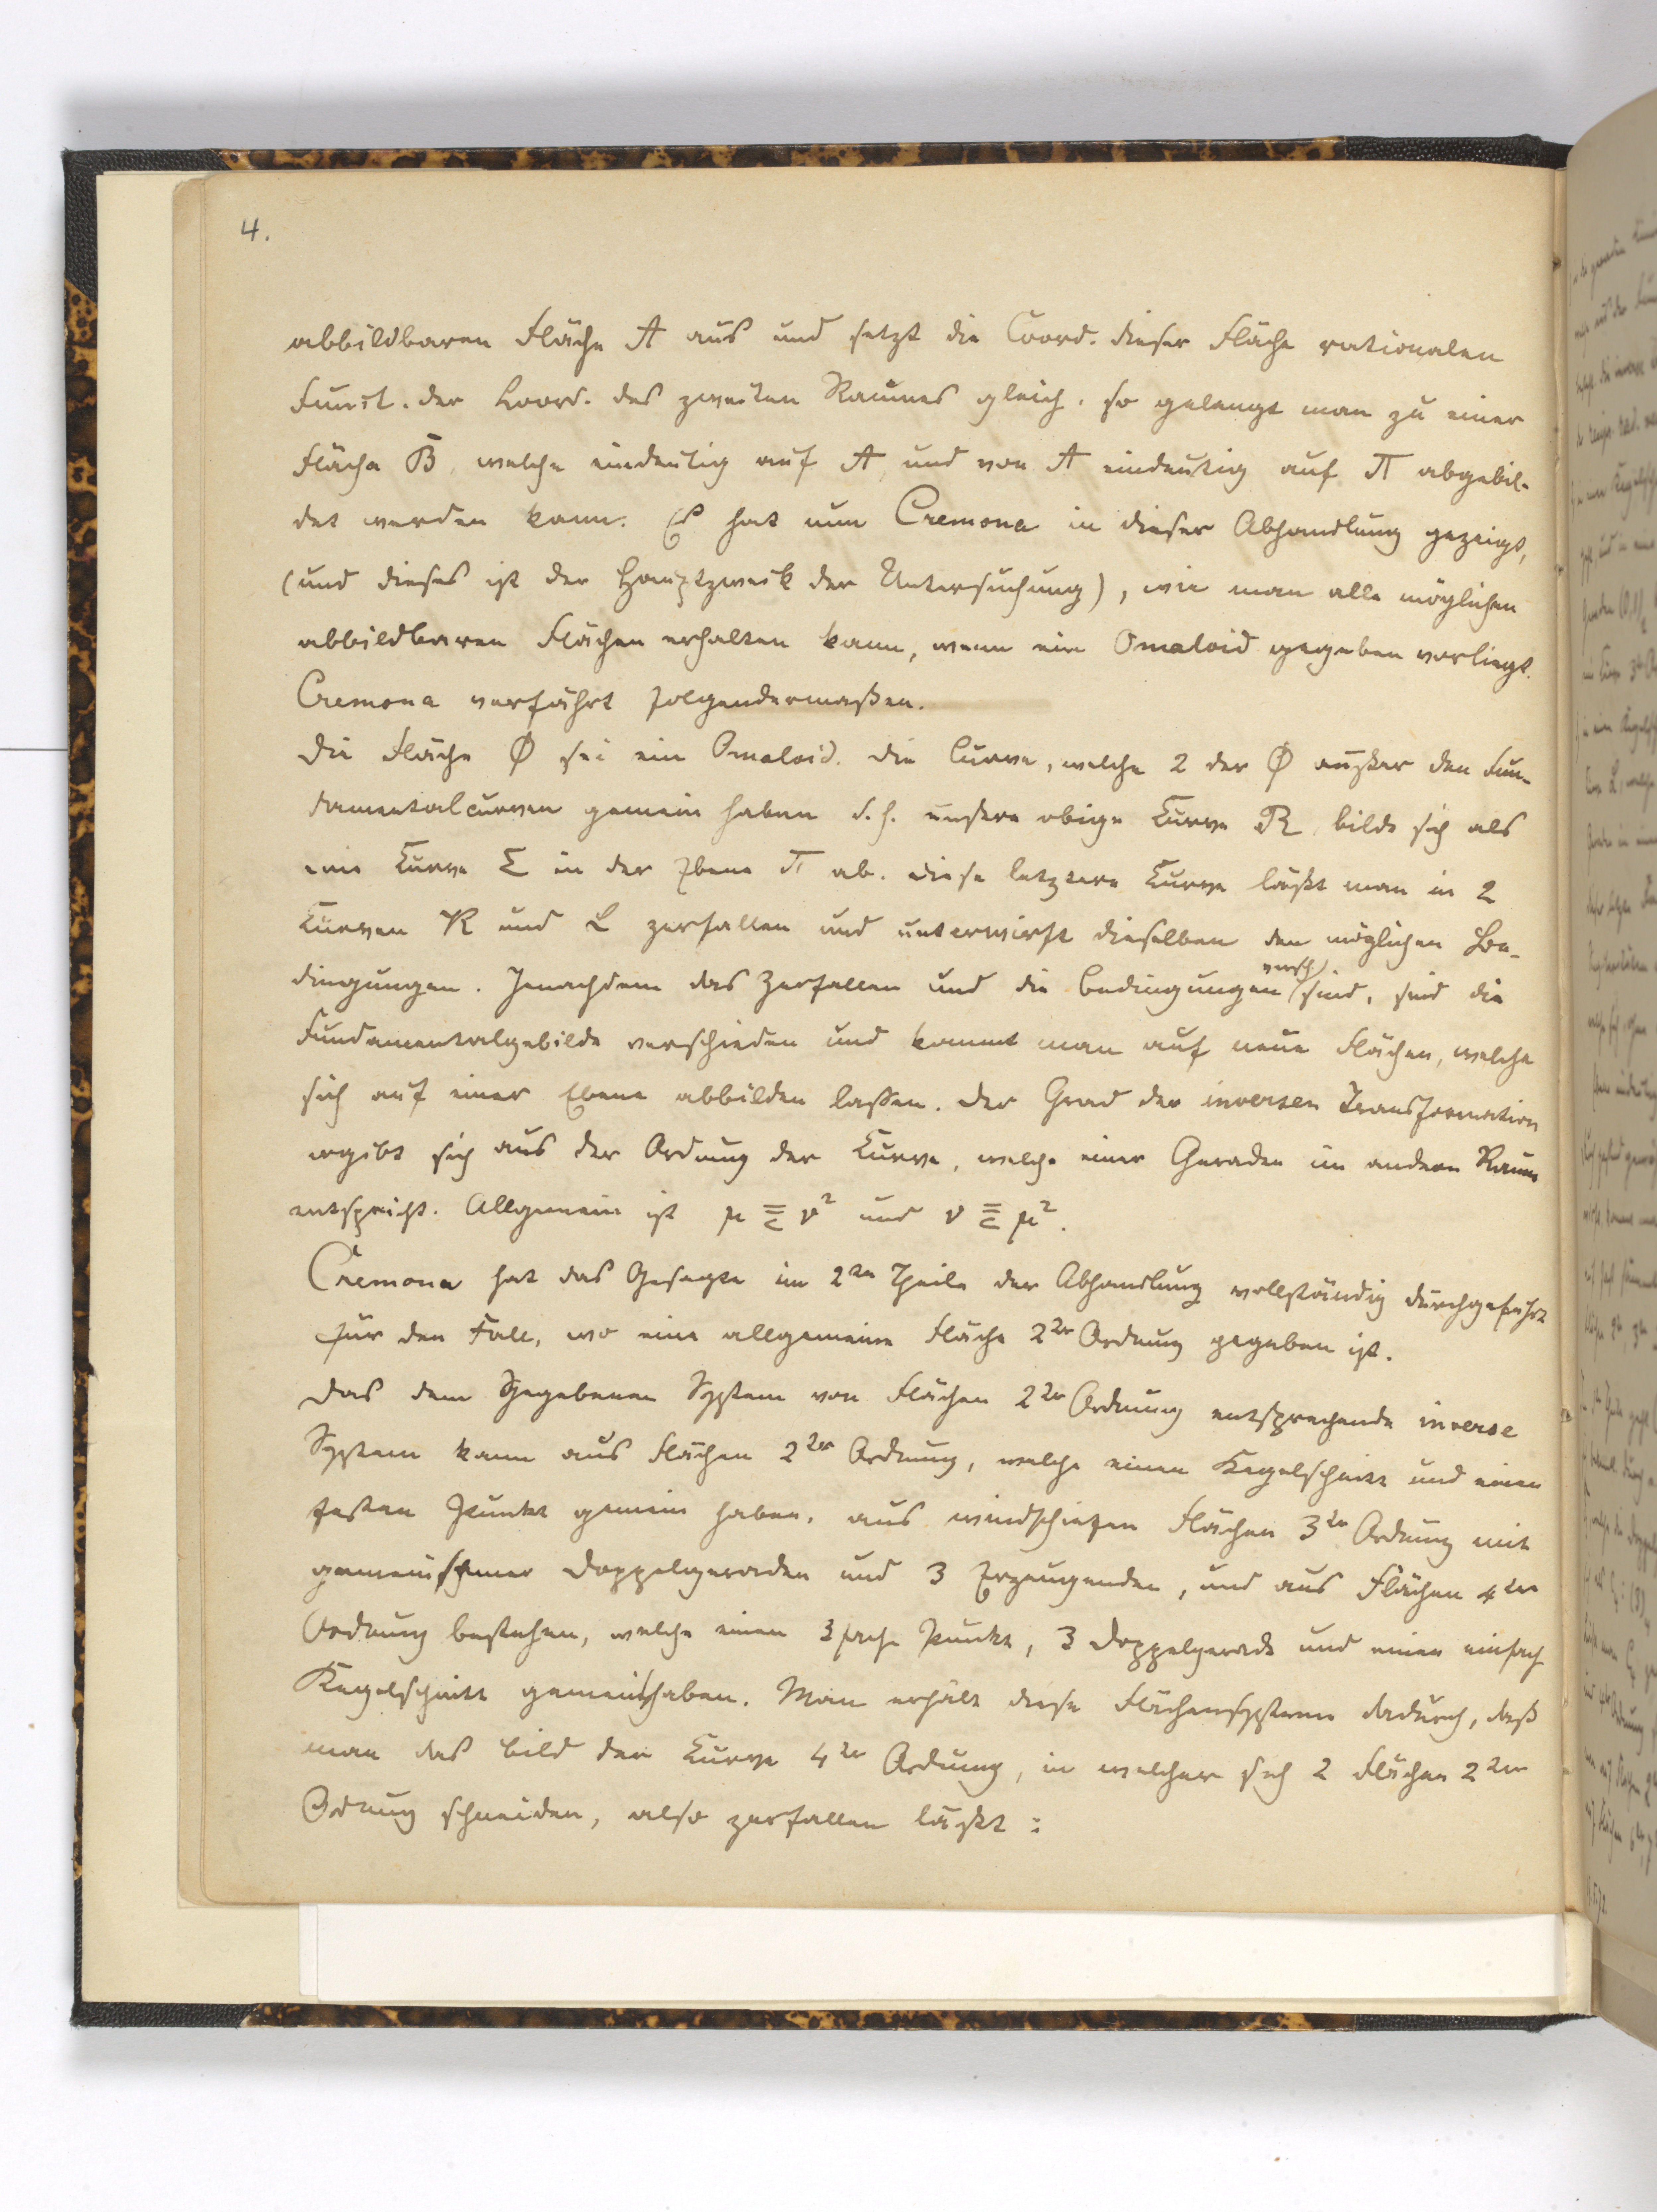 4.
abbildbaren Fläche A aus und setzt die Coord. dieser Fläche rationalen
Funct. der Coord. des zweiten Raumes gleich, so gelangt man zu einer
Fläche B, welche eindeutig auf A und von A eindeutig auf π abgebil-
det werden kann. Es hat nun Cremona in dieser Abhandlung gezeigt,
(und dieses ist der Hauptzweck der Untersuchung), wie man alle möglichen
abbildbaren Flächen erhalten kann, wenn ein Omaloid gegeben vorliegt.
Cremona verfährt folgendermaßen.
Die Fläche Φ sei ein Omaloid. Die Curve, welche 2 der Φ außer den Fun-
damentalcurven gemein haben d. h. unsere obige Curve R bilde sich als
eine Curve Σ in der Ebene π ab. Diese letztere Curve läßt man in 2
Curven K und L zerfallen und unterwirft dieselben den möglichen Be-
dingungen. Jenachdem das Zerfallen und die Bedingungen versch. sind, sind die
Fundamentalgebilde verschieden und kommt man auf neue Flächen, welche
sich auf einer Ebene abbilden lassen. Der Grad der inversen Transformation
ergibt sich aus der Ordnung der Curve, welche einer Geraden im andern Raum
entspricht. Allgemein ist μ ≦ ν² und ν ≦ μ².
Cremona hat das Gesagte im 2ten Theile der Abhandlung vollständig durchgeführt
für den Fall, wo eine allgemeine Fläche 2ter Ordnung gegeben ist.
Das dem Gegebenen System von Flächen 2ter Ordnung entsprechende inverse
System kann aus Flächen 2ter Ordnung, welche einen Kegelschnitt und einen
festen Punkt gemein haben, aus windschiefen Flächen 3ter Ordnung mit
gemeinsamer Doppelgeraden und 3 Erzeugenden, und aus Flächen 4ter
Ordnung bestehen, welche einen 3fach Punkt, 3 Doppelgerade und einen einfach
Kegelschnitt gemein haben. Man erhält diese Flächensysteme dadurch, daß
man das Bild der Curve 4ter Ordnung, in welcher sich 2 Flächen 2ter
Ordnung schneiden, also zerfallen läßt: